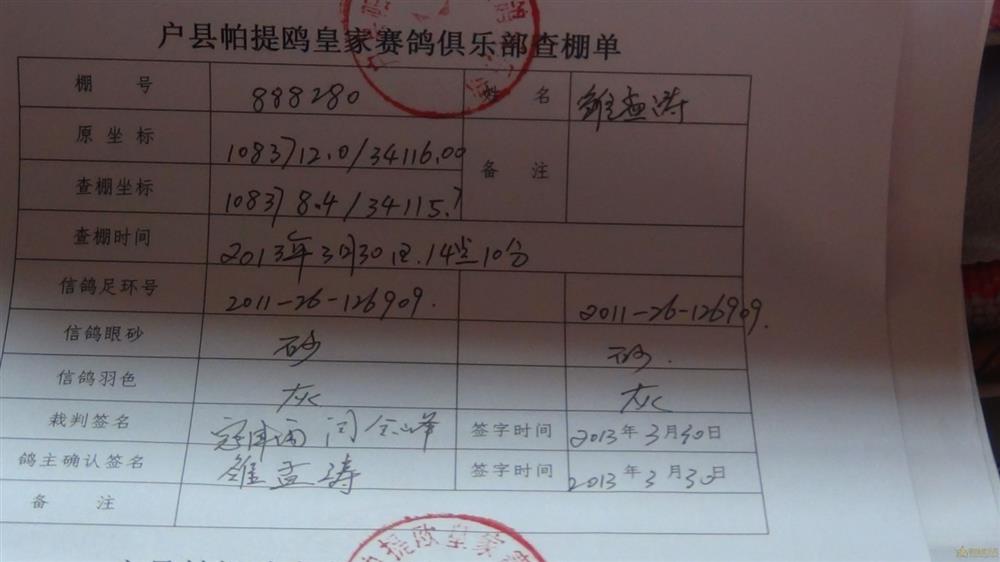 户县帕提鸥皇家赛鸽俱乐部查棚单
棚 号 888280 姓 名 雒孟涛
原坐标 1083712.0/34116.00 备 注
查棚坐标 108378.4/34115.7
查棚时间 2013年3月30日.14点10分
信鸽足环号 2011-26-126909. 2011-26-126909.
信鸽眼砂 砂 砂.
信鸽羽色 灰 灰
裁判签名 签字时间 2013年3月30日
鸽主确认签名 雒孟涛 签字时间 2013年3月30日
备 注
提欧皇家